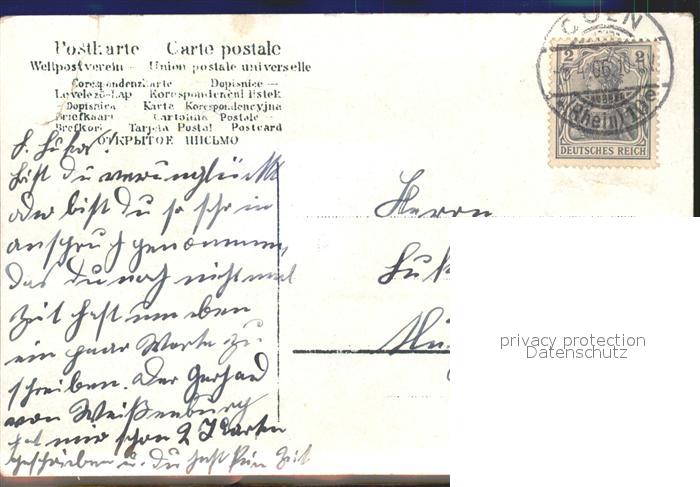 Postkarte Carte postale
Weltpostverein — Union postale universelle
Corespondenzkarte Dopisnice —
Levelező-Lap Korespondenční lístek
Dopisnica Karta Korespondencyjna
Briefkaart Cartolina Postale —
Brefkort Tarjeta Postal Postcard
ОТКРЫТОЕ ПИСЬМО
CÖLN
(Rhein) 1
2 2
DEUTSCHES REICH
L. Lukas!
Bist Du verunglückt
oder bist Du so sehr in
anspruch genommen,
das Du noch nicht mal
Zeit hast um eben
ein paar Worte zu
schreiben. Der Gerhard
von Weißenburg
hat mir schon 2 Karten
geschrieben u. Du hast kein Zeit
Herrn
privacy protection
Datenschutz